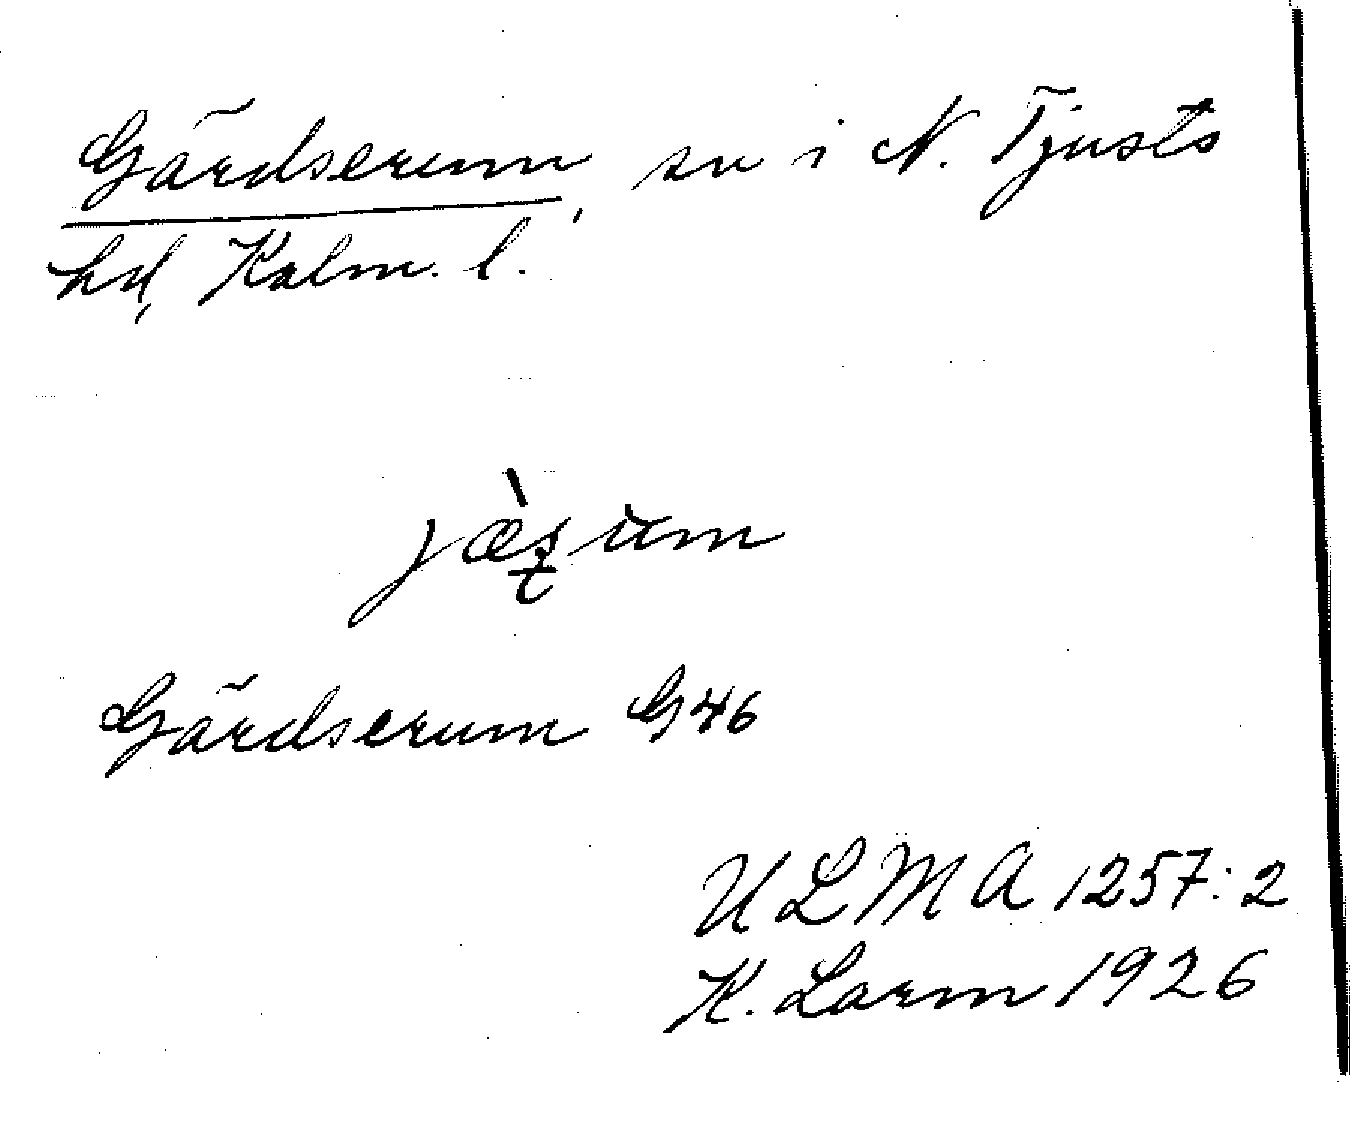 Gärdserum, sn i N. Tjusts
hd, Kalm. l.
Gärdserum G46
ULMA 1257:2
K. Larm 1926